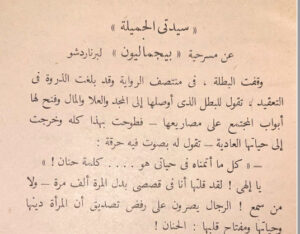 « سيدتى الجميلة »
عن مسرحية « بيجماليون » لبرناردشو
وقفت البطلة ، فى منتصف الرواية وقد بلغت الذروة فى
التعقيد ، تقول للبطل الذى أوصلها إلى المجد والعلا والمال وفتح لها
أبواب المجتمع على مصاريعها — فطوحت بهذا كله وخرجت
إلى حياتها العادية — تقول له بصوت فيه حرقة :
— « كل ما أتمناه فى حياتى هو .... كلمة حنان ! »
يا إلهى ! لقد قلتها أنا فى قصصى بدل المرة ألف مرة — ولا
من سمع ! الرجال يصرون على رفض تصديق أن المرأة دينها
وحياتها ومفتاح قلبها : الحنان !